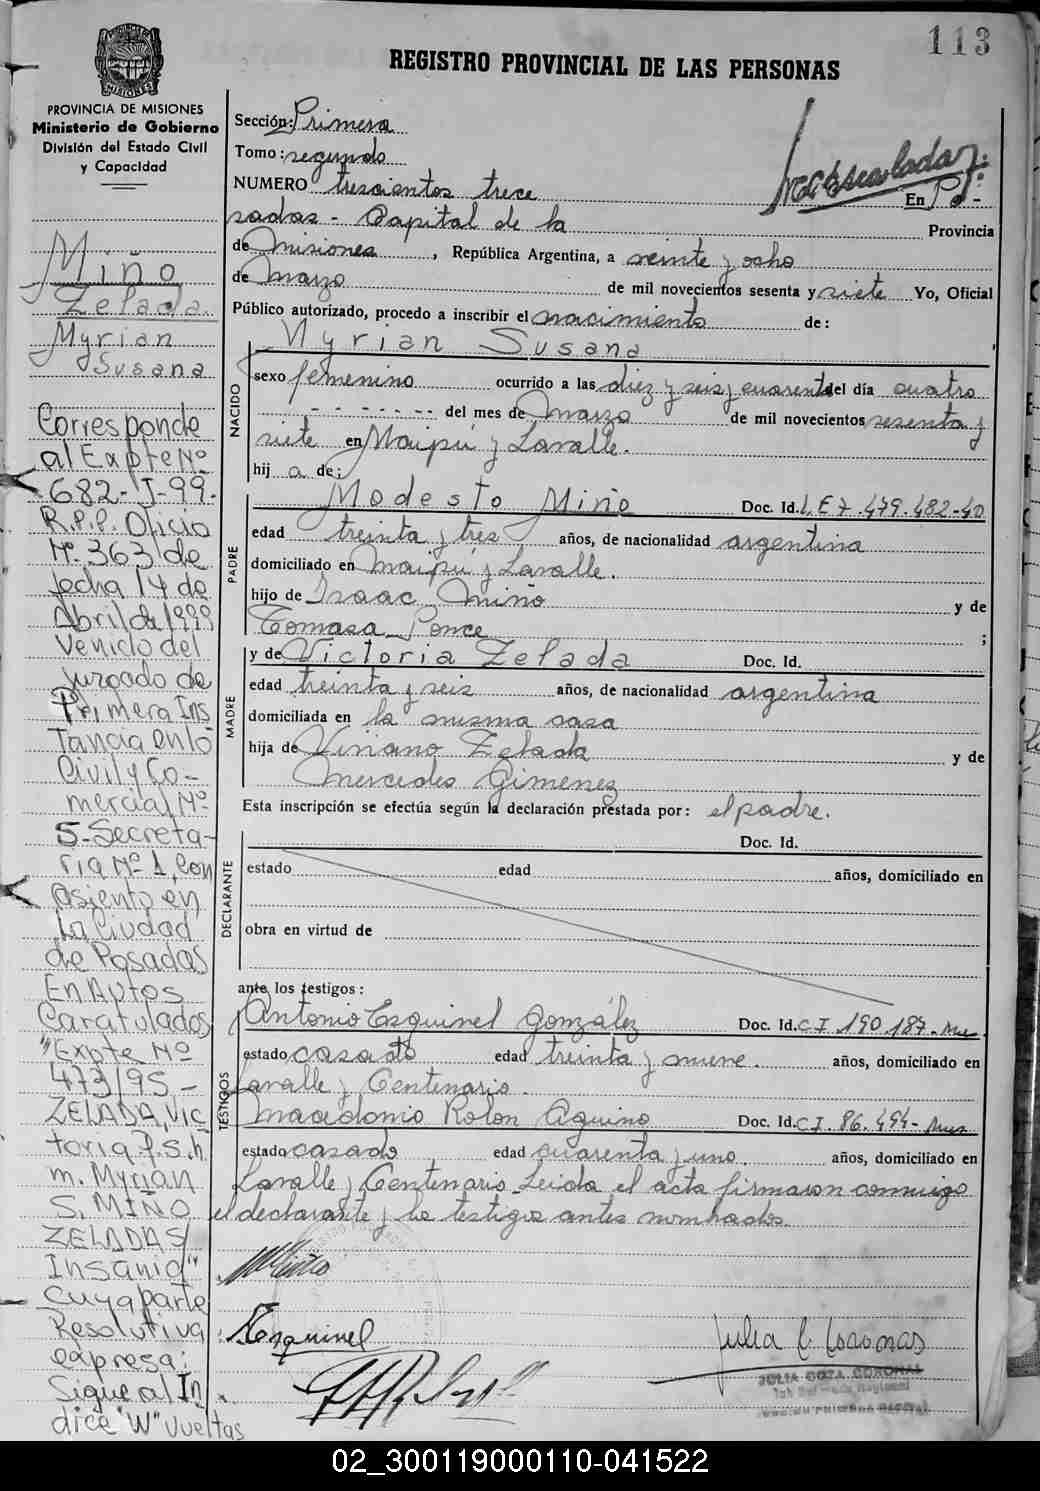 113
REGISTRO PROVINCIAL DE LAS PERSONAS
PROVINCIA DE MISIONES
Ministerio de Gobierno
División del Estado Civil
y Capacidad
Miño
Zelada
Myrian
Susana
Corresponde
al Expte Nº
682-J-99-
R.P.P. Oficio
Nº 363 de
fecha 14 de
Abril de 1999
Venido del
Juzgado de
Primera Ins
tancia en lo
Civil y Co-
mercial Nº
5-Secreta-
ria Nº 1, con
Asiento en
La Ciudad
de Posadas
En Autos
Caratulados
"Expte Nº
473/95-
ZELADA, Vic
toria P.S.h
m. Myrian
S. MIÑO
ZELADA S/
Insania"
Cuya parte
Resolutiva
expresa:
Sigue al In
dice "W" Vueltas
Sección: Primera
Tomo: segundo
NUMERO trescientos trece En Po-
sadas - Capital de la Provincia
de Misiones, República Argentina, a veinte y ocho
de Marzo de mil novecientos sesenta y siete Yo, Oficial
Público autorizado, procedo a inscribir el nacimiento de:
Myrian Susana
NACIDO
sexo femenino ocurrido a las diez y seis y cuarenta del día cuatro
------ del mes de Marzo de mil novecientos sesenta y
siete en Maipú y Lavalle.
hij a de:
PADRE
Modesto Miño Doc. Id. L.E 7.479.482-40
edad treinta y tres años, de nacionalidad argentina
domiciliado en Maipú y Lavalle.
hijo de Isaac Miño y de
Tomasa Ponce ;
MADRE
y de Victoria Zelada Doc. Id.
edad treinta y seis años, de nacionalidad argentina
domiciliada en la misma casa
hija de Viviano Zelada y de
Mercedes Gimenez
Esta inscripción se efectúa según la declaración prestada por: el padre.
DECLARANTE
Doc. Id.
estado edad años, domiciliado en
obra en virtud de
ante los testigos:
TESTIGOS
Antonio Esquinel González Doc. Id. C.I. 190.187-Mnes.
estado casado edad treinta y nueve. años, domiciliado en
Lavalle y Centenario.
Macedonio Rolon Aquino Doc. Id. C.I. 86.494-Mnes
estado casado edad cuarenta y uno. años, domiciliado en
Lavalle y Centenario. Leida el acta firmaron conmigo
el declarante y los testigos antes nombrados.
M Miño
Esquinel
Julia C. Coronas
JULIA COTA CORONAL
02_300119000110-041522